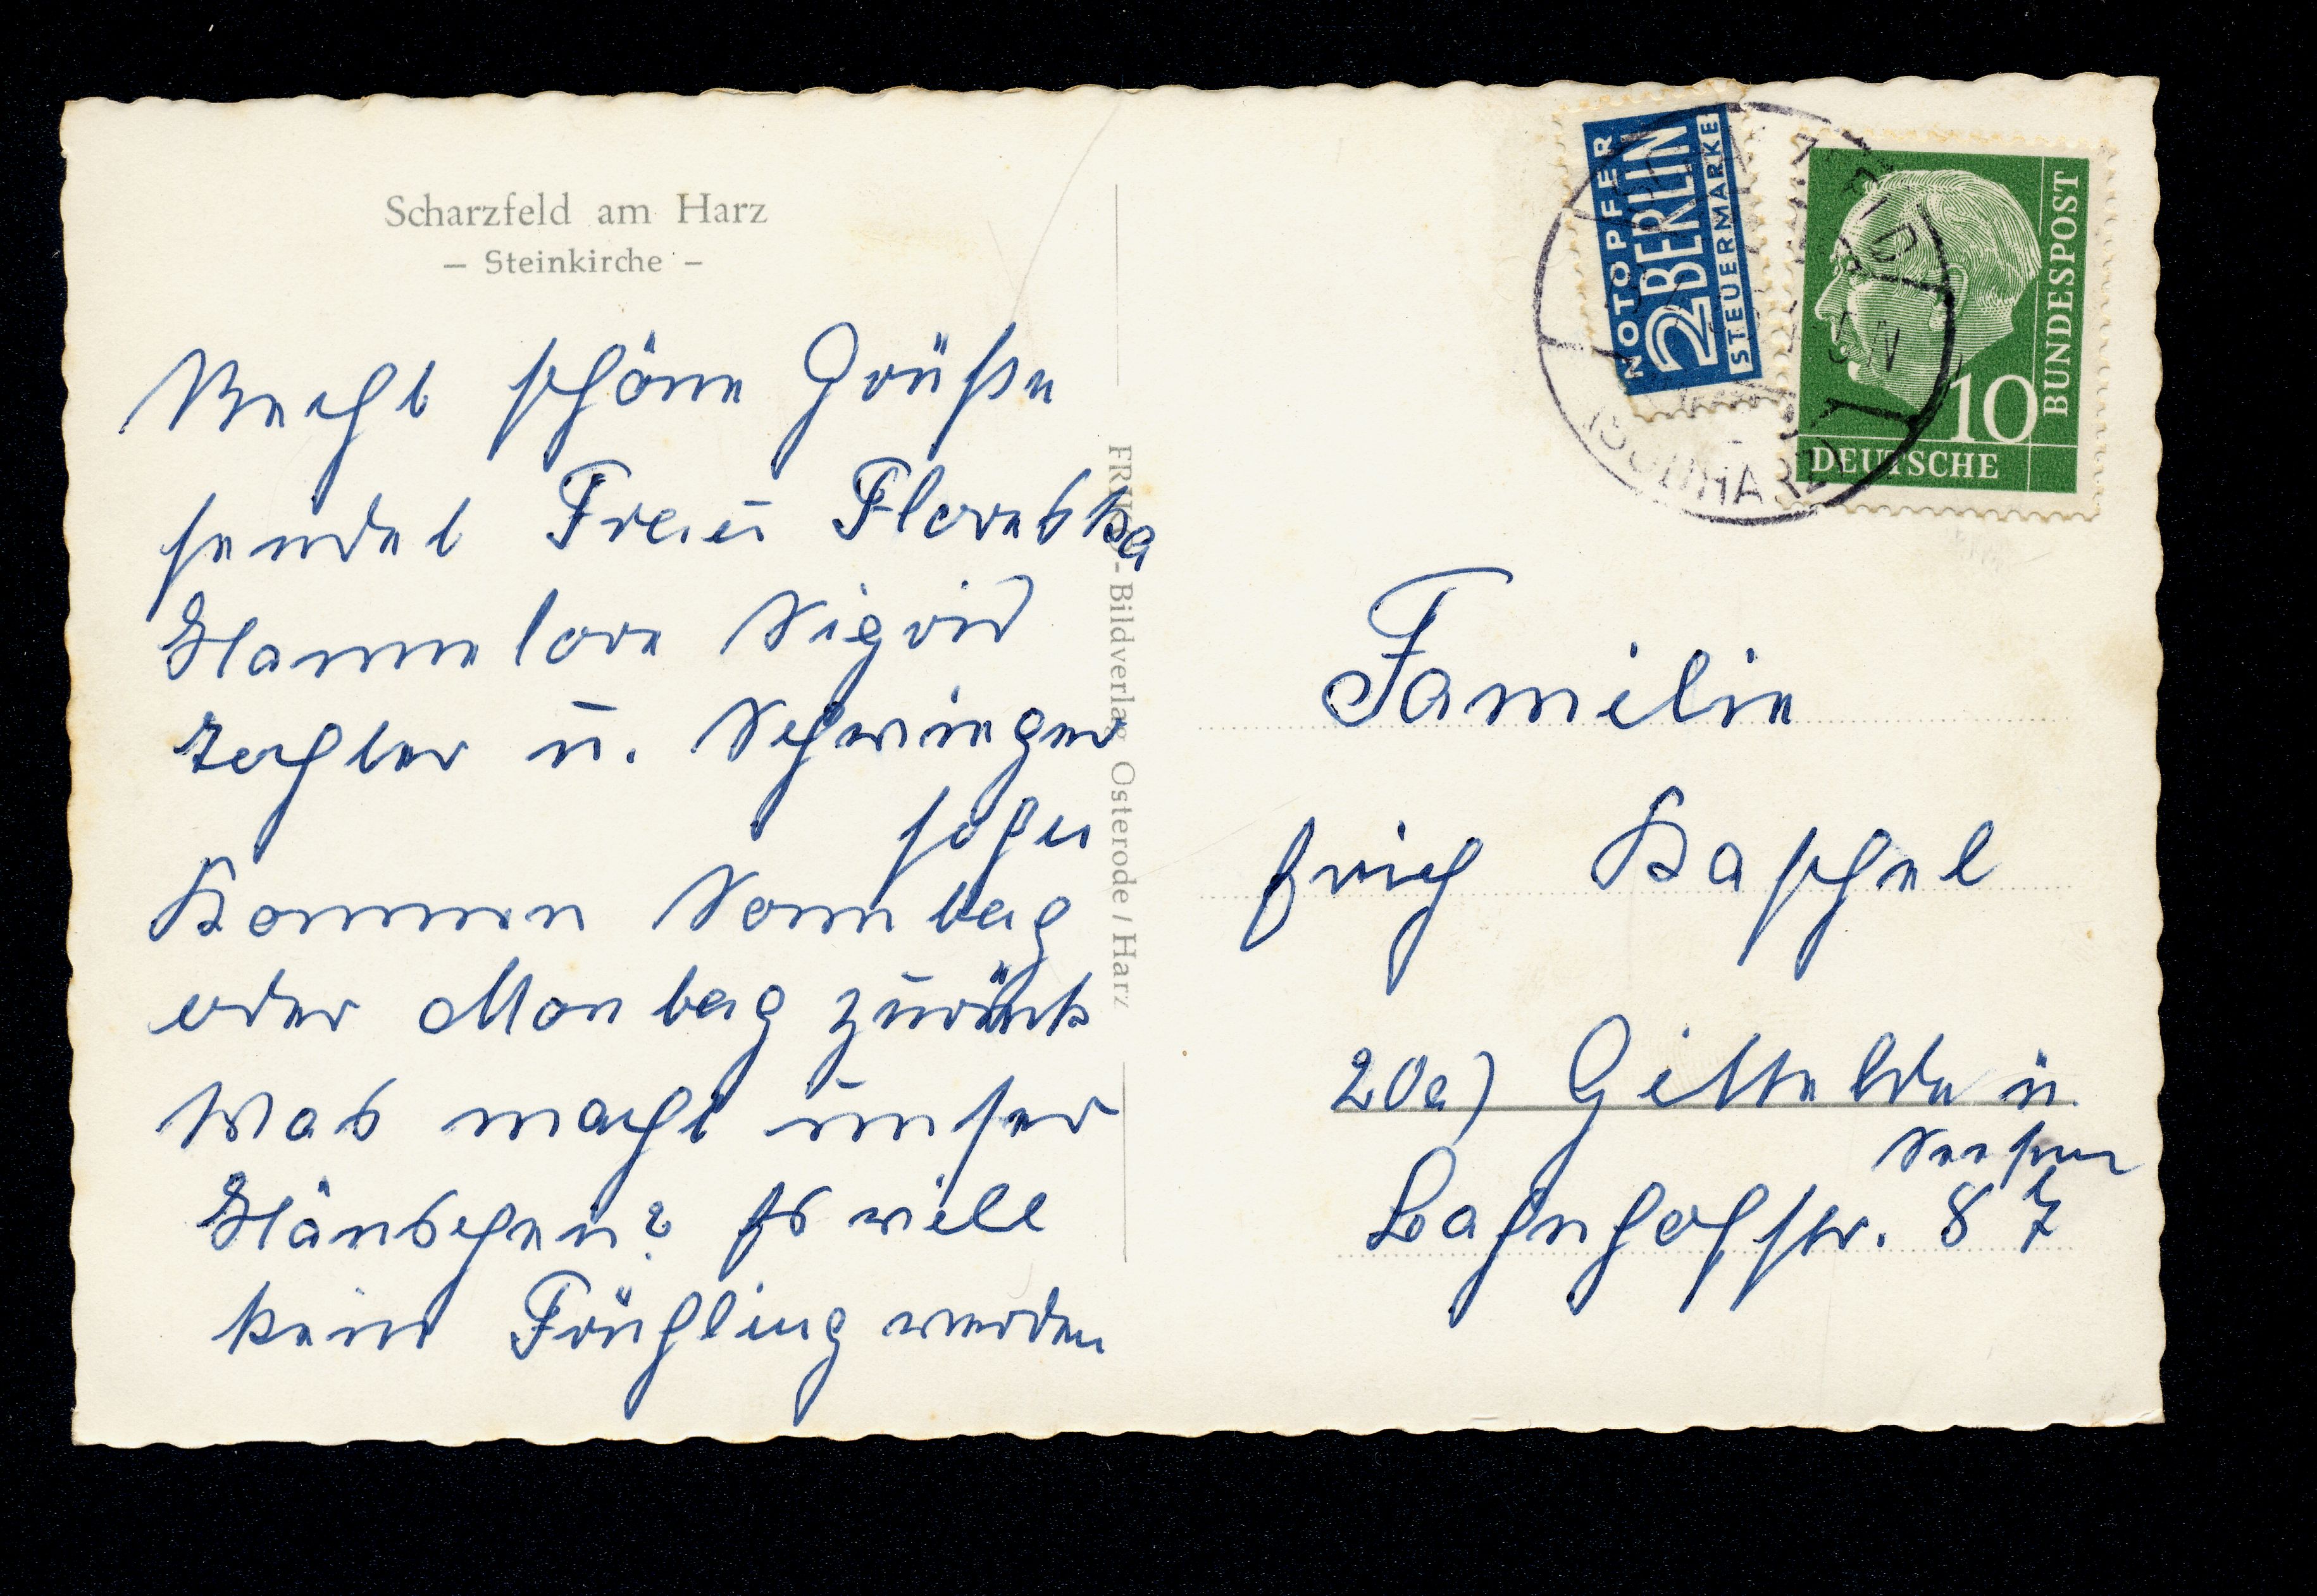 Scharzfeld am Harz
– Steinkirche –
Recht schöne Grüße
sendet Frau Floretska
Hannelore Sigrid
Tochter u. Schwieger
sohn
Kommen Sonntag
oder Montag zurück
Was macht unser
Hänschen? Es will
kein Frühling werden
FRI -Bildverlag Osterode / Harz
NOTOPFER
2 BERLIN
STEUERMARKE
DEUTSCHE
BUNDESPOST
10
Familie
Erich Kaschel
20a) Gittelde ü.
Seesen
Bahnhofstr. 87